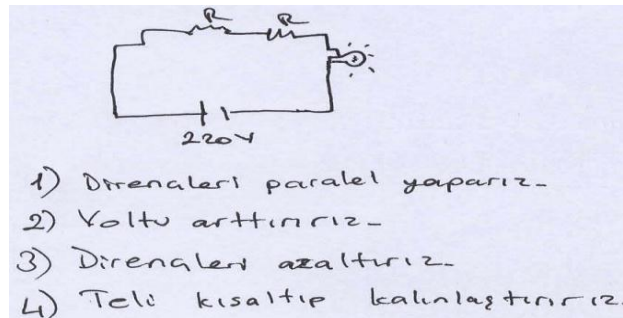 R R
220V
1) Dirençleri paralel yaparız.
2) Voltu arttırırız.
3) Dirençleri azaltırız.
4) Teli kısaltıp kalınlaştırırız.